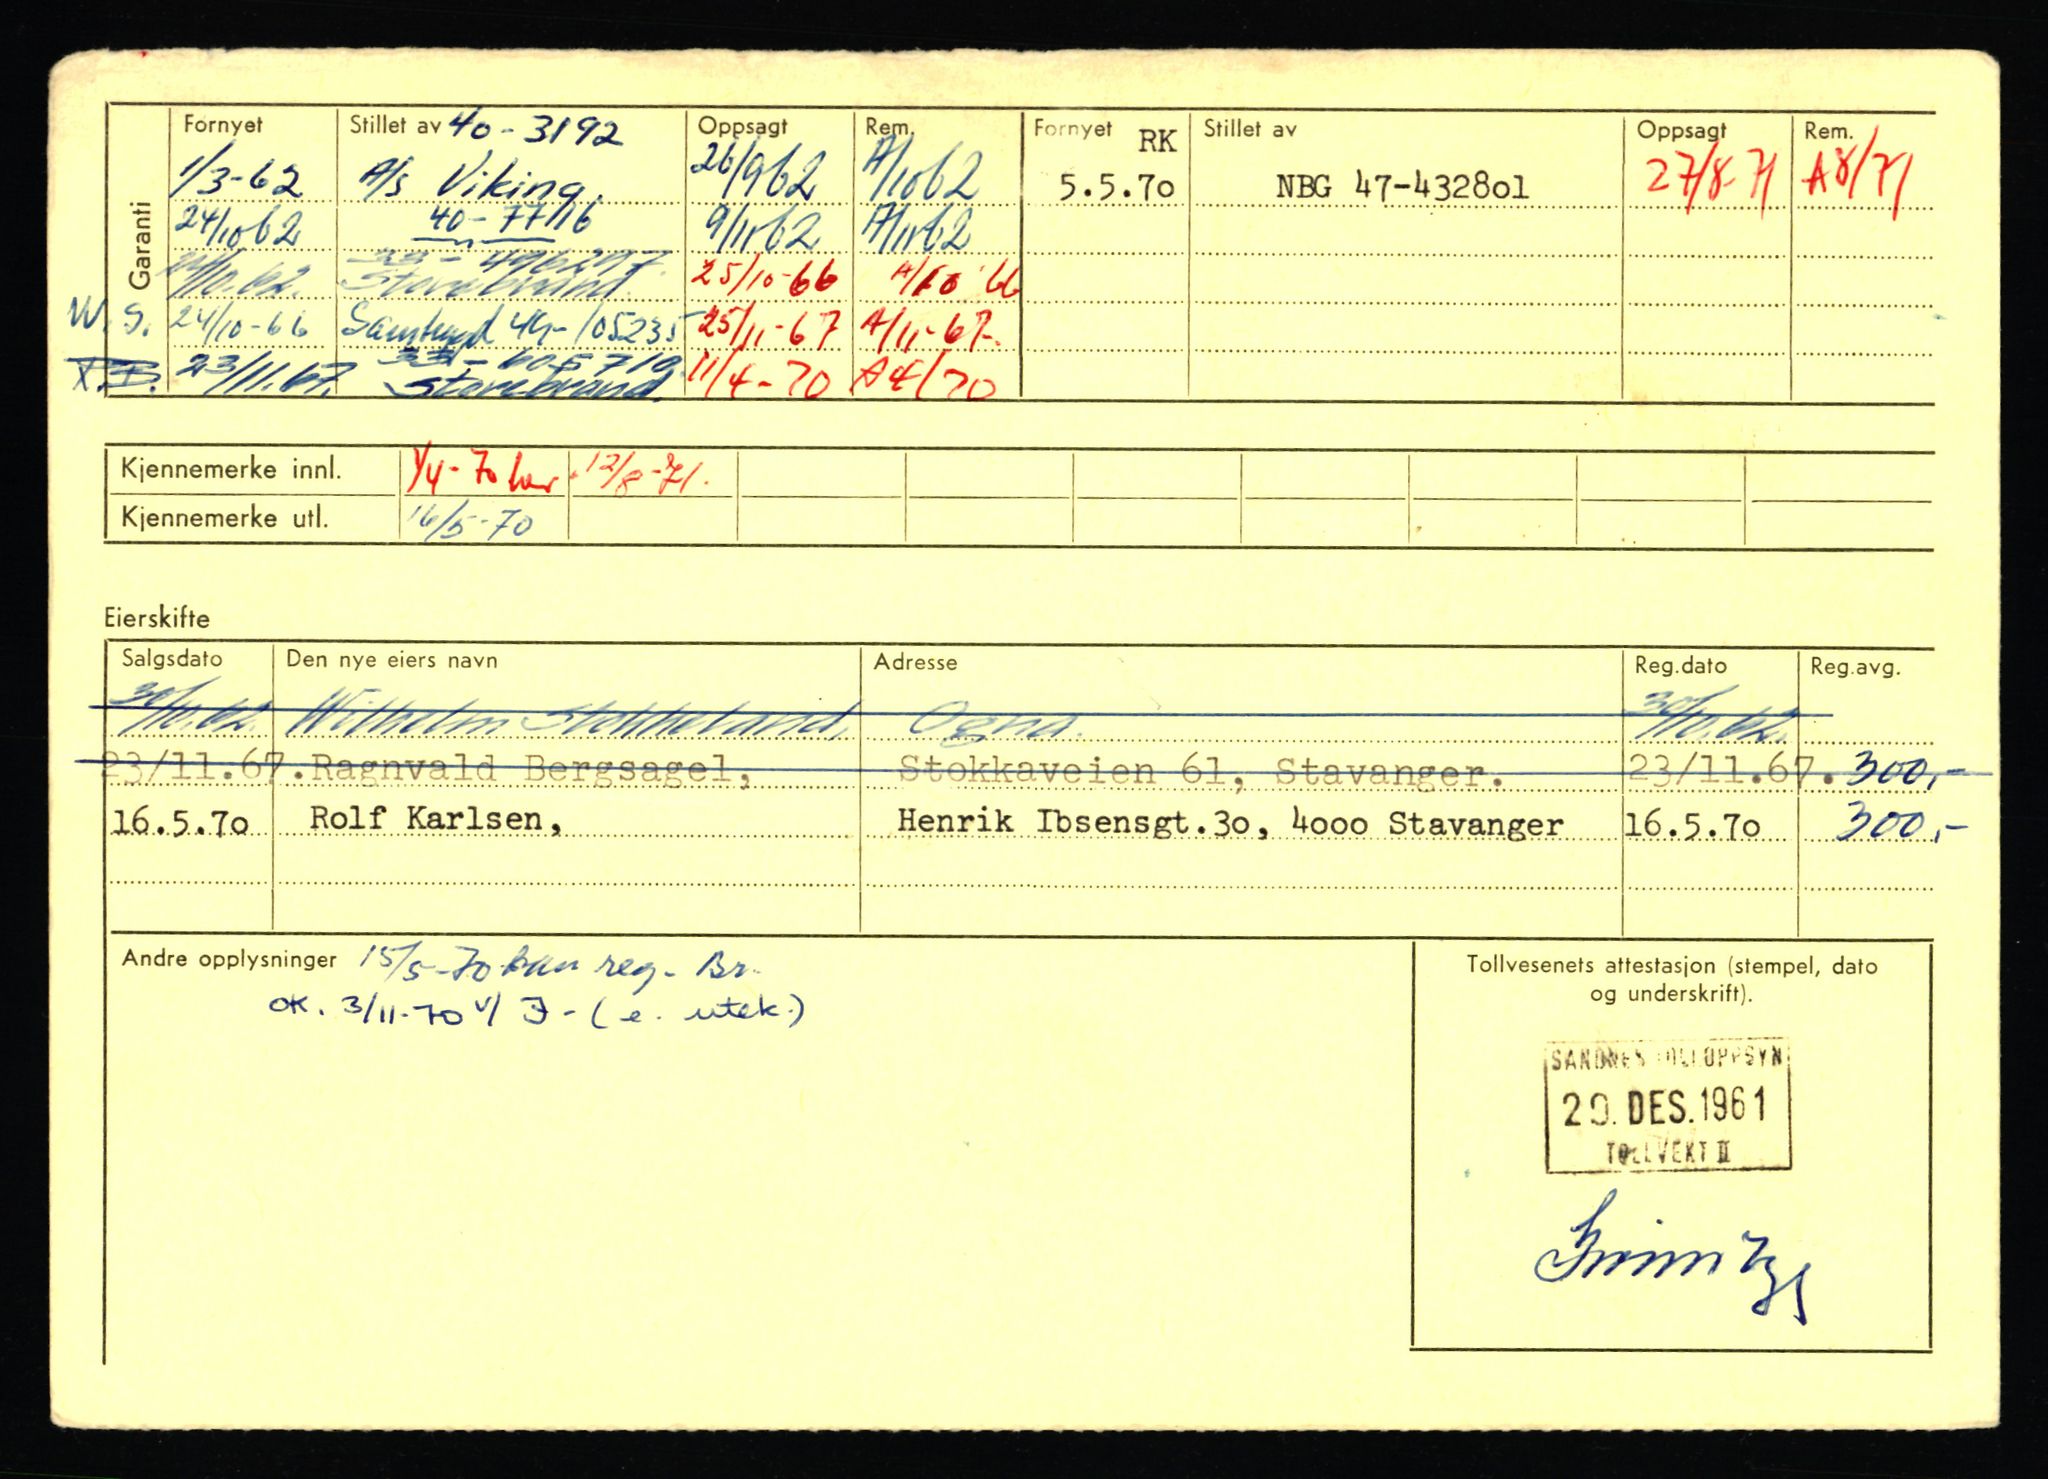 Garanti
Fornyet Stillet av 40-3192 Oppsagt Rem. Fornyet RK Stillet av Oppsagt Rem.
1/3-62 A/s Viking. 26/9 62 A/10 62 5.5.70 NBG 47-432801 27/8-71 A8/71
24/10 62 40-77716 9/11 62 A/11 62
33-496297.
Storebrand. 25/10-66 A/10 '66
W.S. 24/10-66 Samtrygd 44-105235 25/11-67 A/11-67.
23/11.67. 33-6057
Storebrand. 11/4-70 A4/70
Kjennemerke innl. 1/4-70 12/8-71.
Kjennemerke utl. 16/5-70
Eierskifte
Salgsdato Den nye eiers navn Adresse Reg.dato Reg.avg.
30/10.62. Wilhelm Stokkeland, Ogna. 30/10.62.
23/11.67. Ragnvald Bergsagel, Stokkaveien 61, Stavanger. 23/11.67. 300,-
16.5.70 Rolf Karlsen, Henrik Ibsensgt.30, 4000 Stavanger 16.5.70 300,-
Andre opplysninger 15/5-70 kan reg. Br.
OK. 3/11-70 v/ (e. utek.)
Tollvesenets attestasjon (stempel, dato
og underskrift).
SANDNES TOLLOPPSYN
20. DES. 1961
TOLLVEKT II